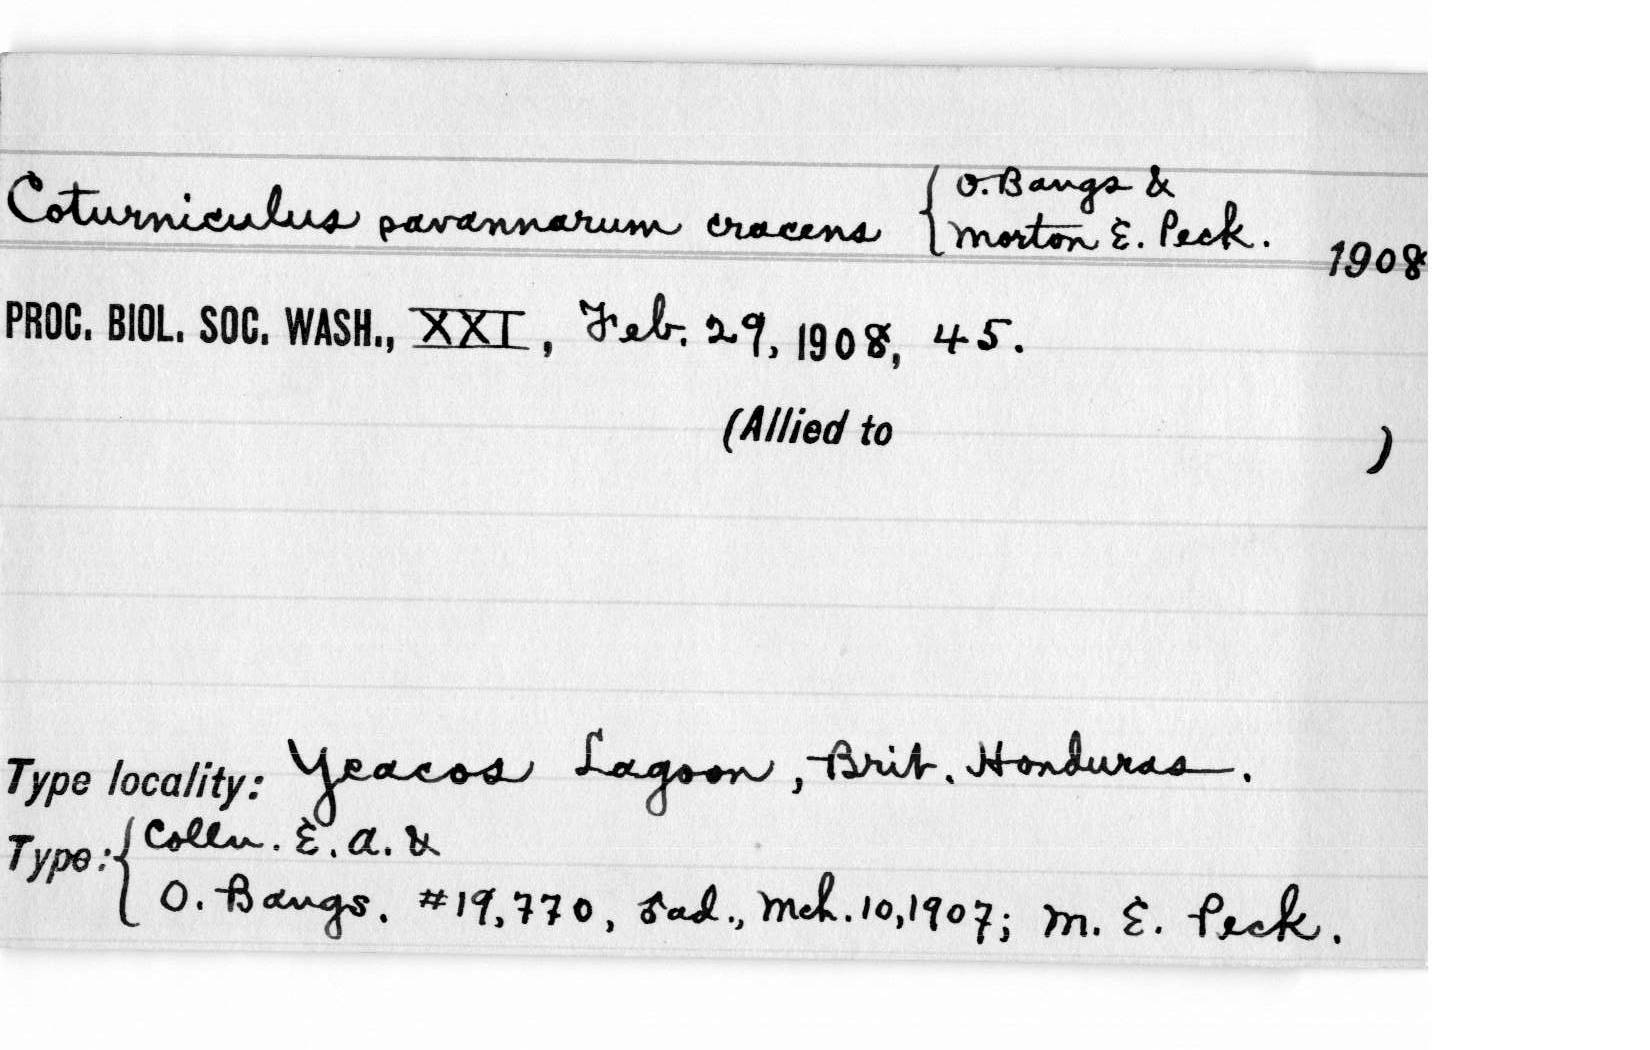 Coturniculus savannarum cracens { O. Bangs &
Morton E. Peck. 1908
PROC. BIOL. SOC. WASH., XXI, Feb. 29, 1908, 45.
(Allied to )
Type locality: Yeacos Lagoon, Brit. Honduras.
Type: { Colln. E. A. &
O. Bangs. #19,770, ♂ad., Mch. 10, 1907; M. E. Peck.